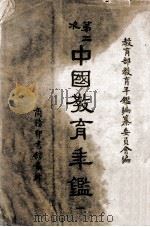 教育部教育年鑑編纂委員會編
第二次
中國教育年鑑
商務印書館發行